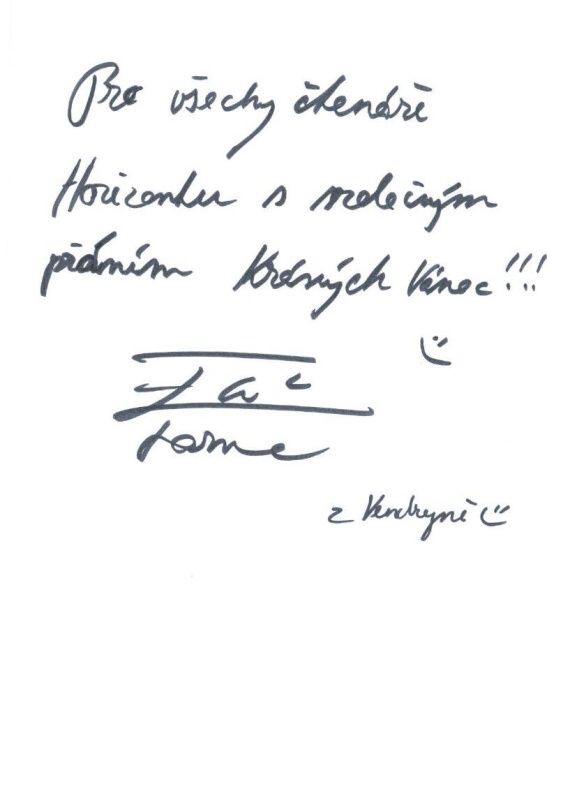 Pro všechy čtenáře
Horizontu s srdečným
přáním Krásných Vánoc!!!
z Vendryně